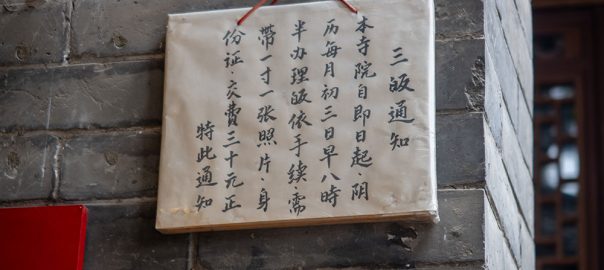 三皈通知
本寺院自即日起.阴
历每月初三日早八時
半办理皈依手续.需
帶一寸一张照片.身
份证.交费三十元正
特此通知